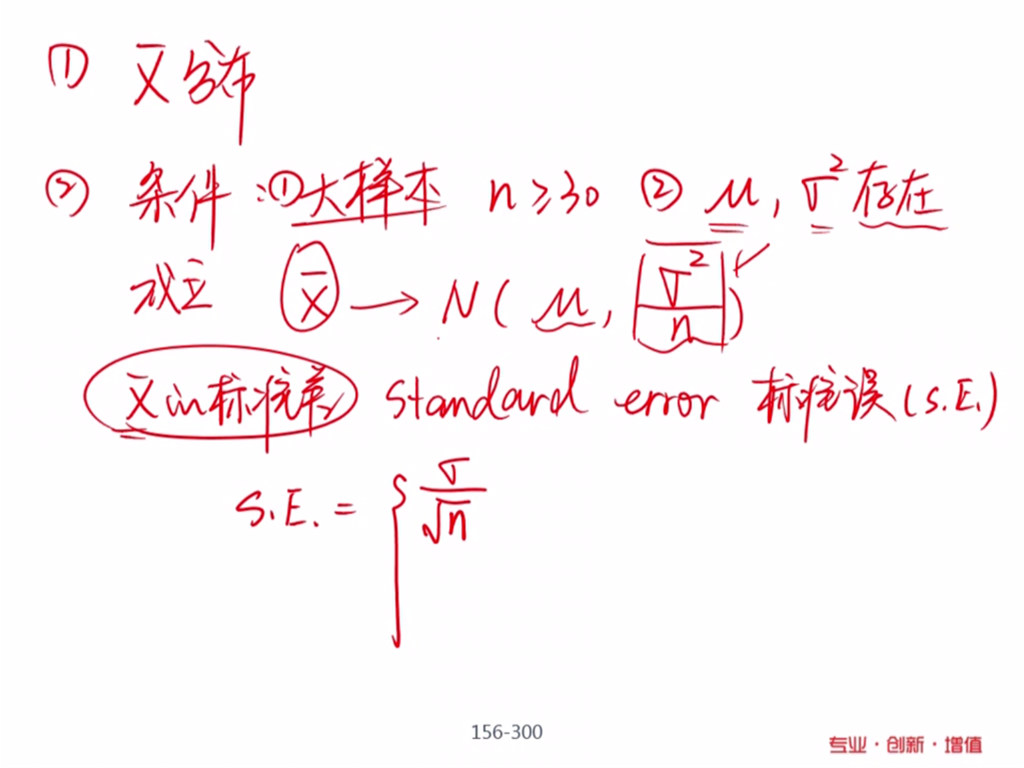 ① X̄ 分布
② 条件:①大样本 n≥30 ② μ, σ² 存在
成立 X̄ → N(μ, σ²/n) ✓
X̄ 的标准差 standard error 标准误(S.E.)
S.E. = { σ/√n
156-300
专业·创新·增值